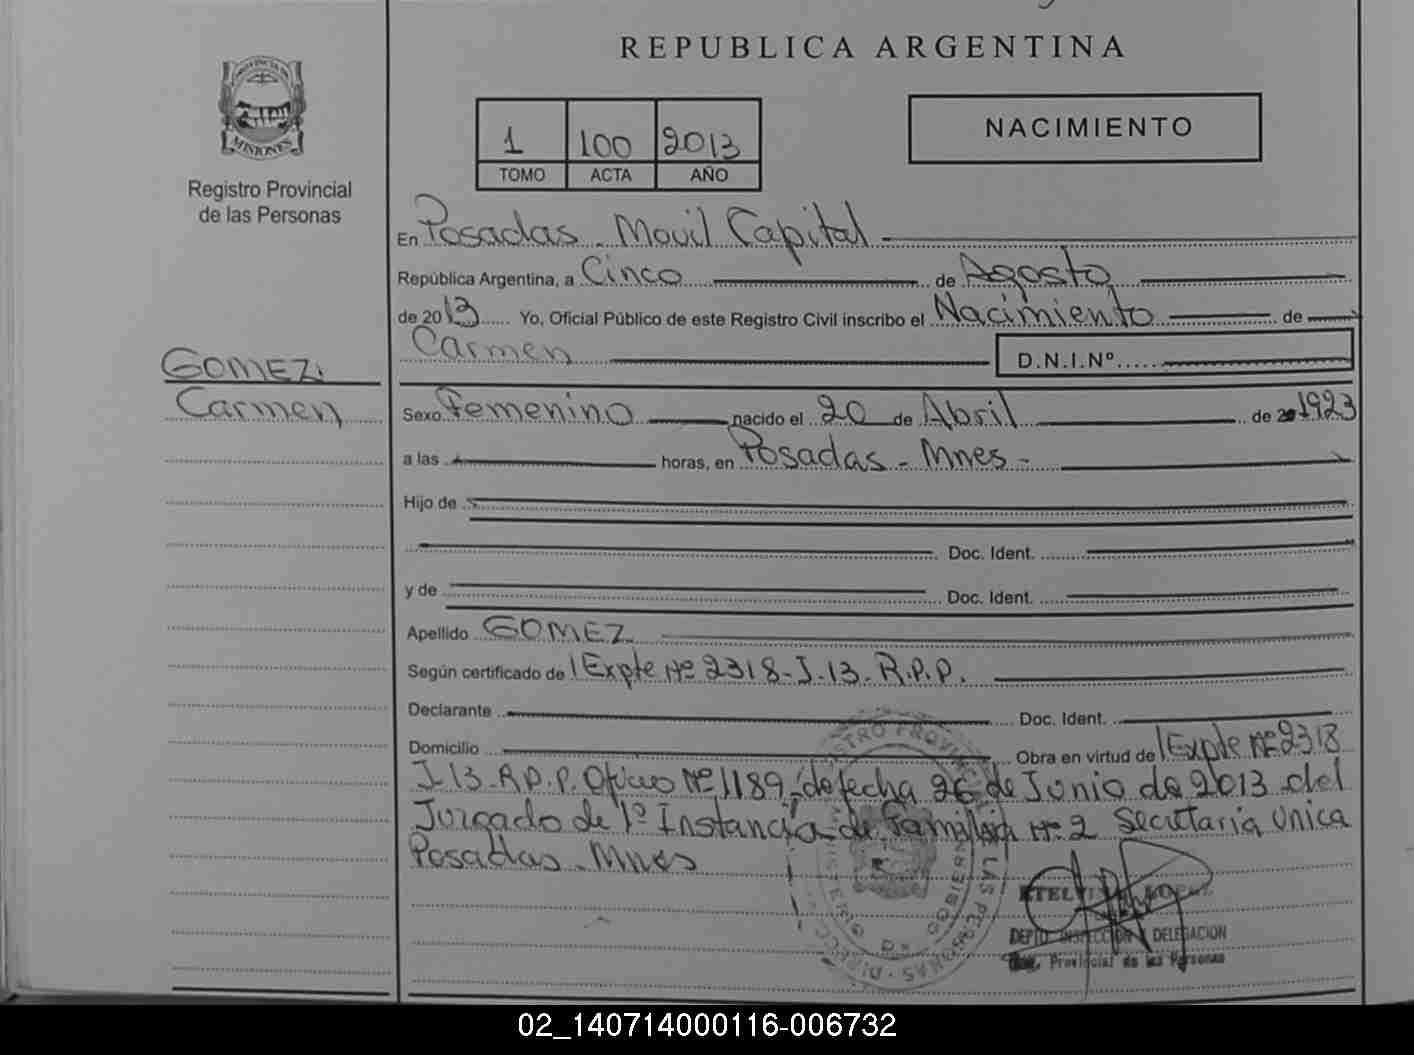 REPUBLICA ARGENTINA
PROVINCIA DE
MISIONES
Registro Provincial
de las Personas
1 100 2013
TOMO ACTA AÑO
NACIMIENTO
En Posadas - Movil Capital
República Argentina, a Cinco de Agosto
de 2013 Yo, Oficial Público de este Registro Civil inscribo el Nacimiento de
Carmen D.N.I.Nº
GOMEZ
Carmen
Sexo Femenino nacido el 20 de Abril de 20 1923
a las horas, en Posadas - Mnes -
Hijo de
Doc. Ident.
y de Doc. Ident.
Apellido GOMEZ
Según certificado de Expte Nº 2318-J-13-R.P.P.
Declarante Doc. Ident.
Domicilio Obra en virtud de Expte Nº 2318
J-13-R.P.P. Oficio Nº 1189 de fecha 26 de Junio de 2013 del
Juzgado de 1º Instancia de Familia Nº 2 Secretaria Unica
Posadas - Mnes
DEPTO INSPECCION Y DELEGACION
Provincial de las Personas
02_140714000116-006732